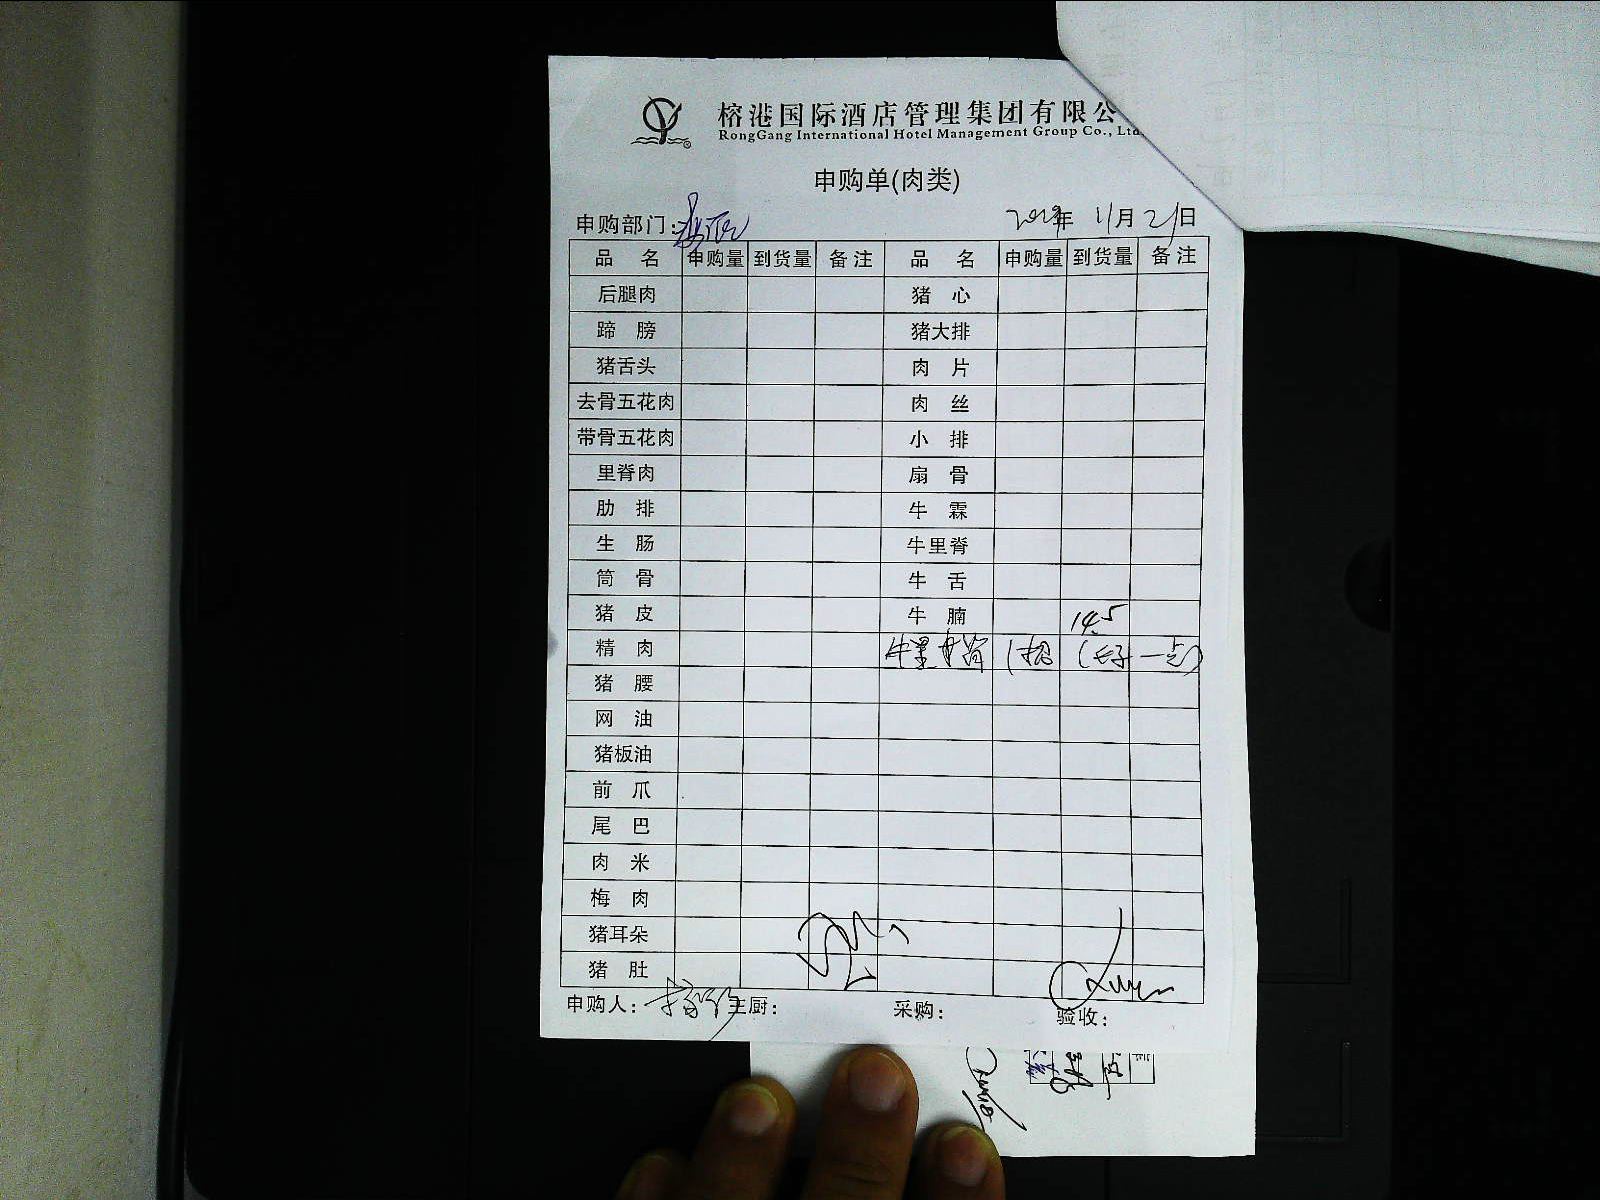 榕港国际酒店管理集团有限公
RongGang International Hotel Management Group Co., Ltd
申购单(肉类)
申购部门:
年 11月21日
品 名 申购量 到货量 备注 品 名 申购量 到货量 备注
后腿肉 猪 心
蹄 膀 猪大排
猪舌头 肉 片
去骨五花肉 肉 丝
带骨五花肉 小 排
里脊肉 扇 骨
肋 排 牛 霖
生 肠 牛里脊
筒 骨 牛 舌
猪 皮 牛 腩 14.5
精 肉 牛里脊
猪 腰
网 油
猪板油
前 爪
尾 巴
肉 米
梅 肉
猪耳朵
猪 肚
申购人: 主厨: 采购: 验收: